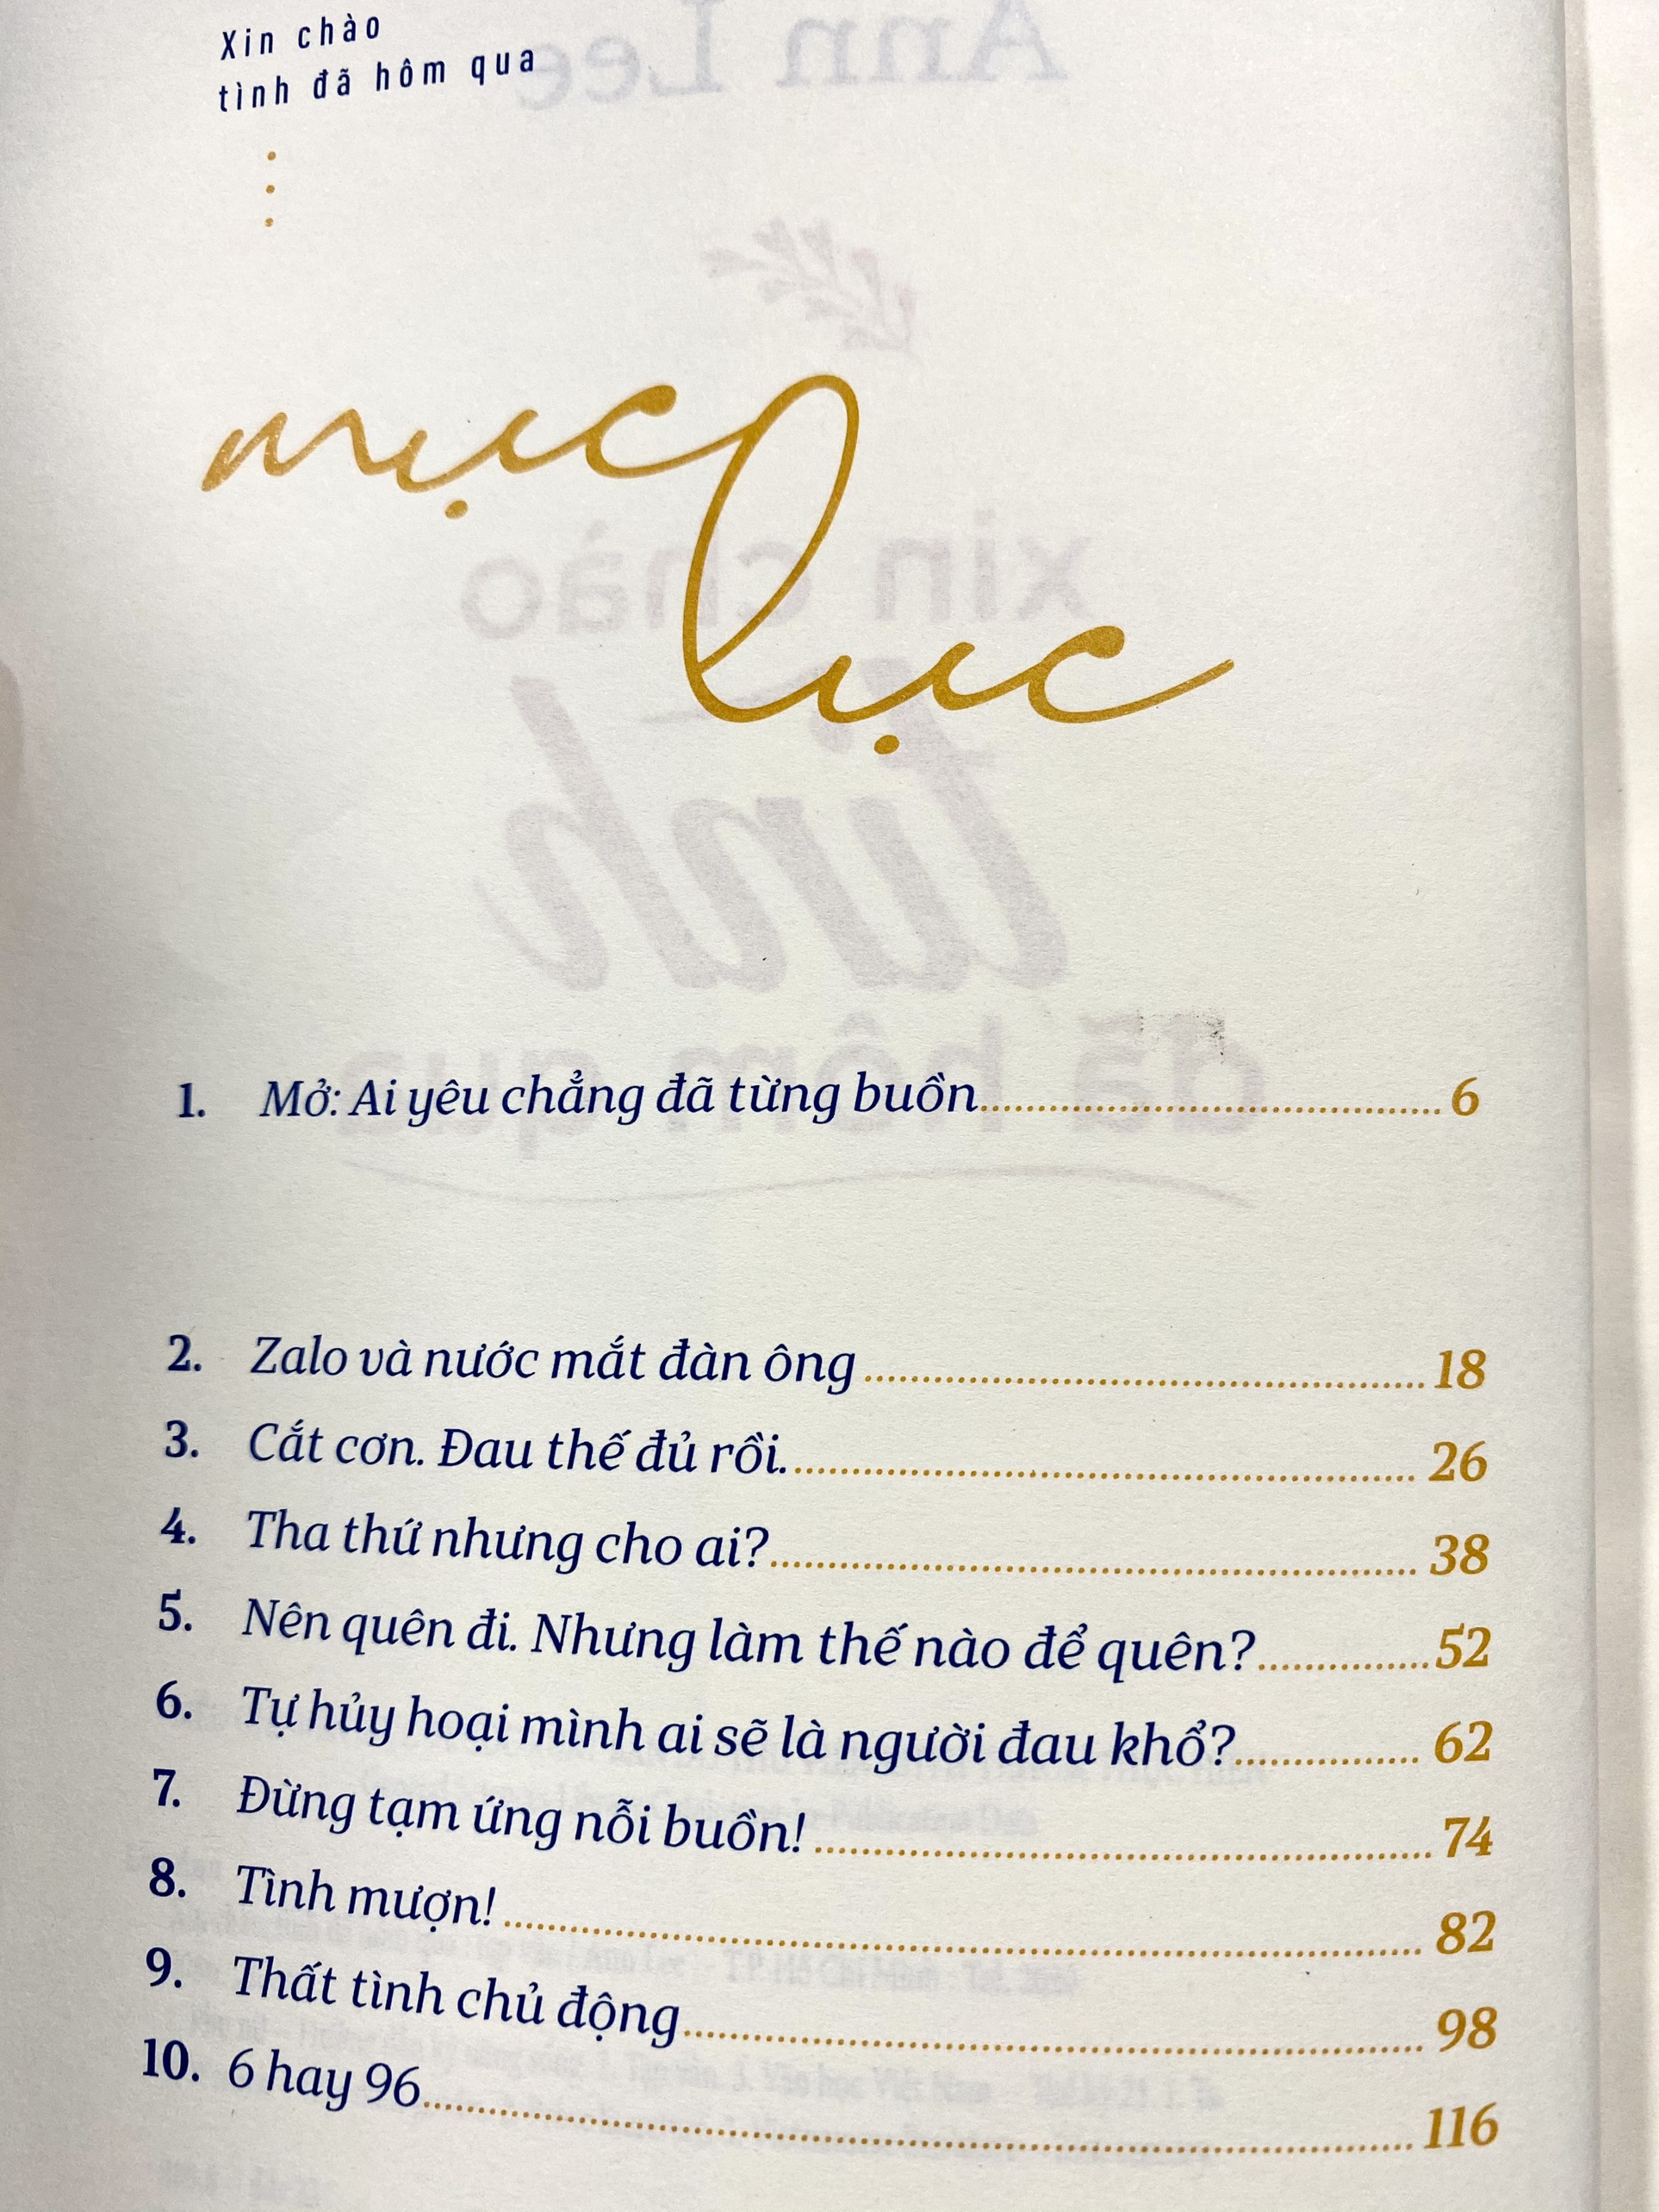 Xin chào
tình đã hôm qua
mục lục
1. Mở: Ai yêu chẳng đã từng buồn 6
2. Zalo và nước mắt đàn ông 18
3. Cắt cơn. Đau thế đủ rồi. 26
4. Tha thứ nhưng cho ai? 38
5. Nên quên đi. Nhưng làm thế nào để quên? 52
6. Tự hủy hoại mình ai sẽ là người đau khổ? 62
7. Đừng tạm ứng nỗi buồn! 74
8. Tình mượn! 82
9. Thất tình chủ động 98
10. 6 hay 96 116